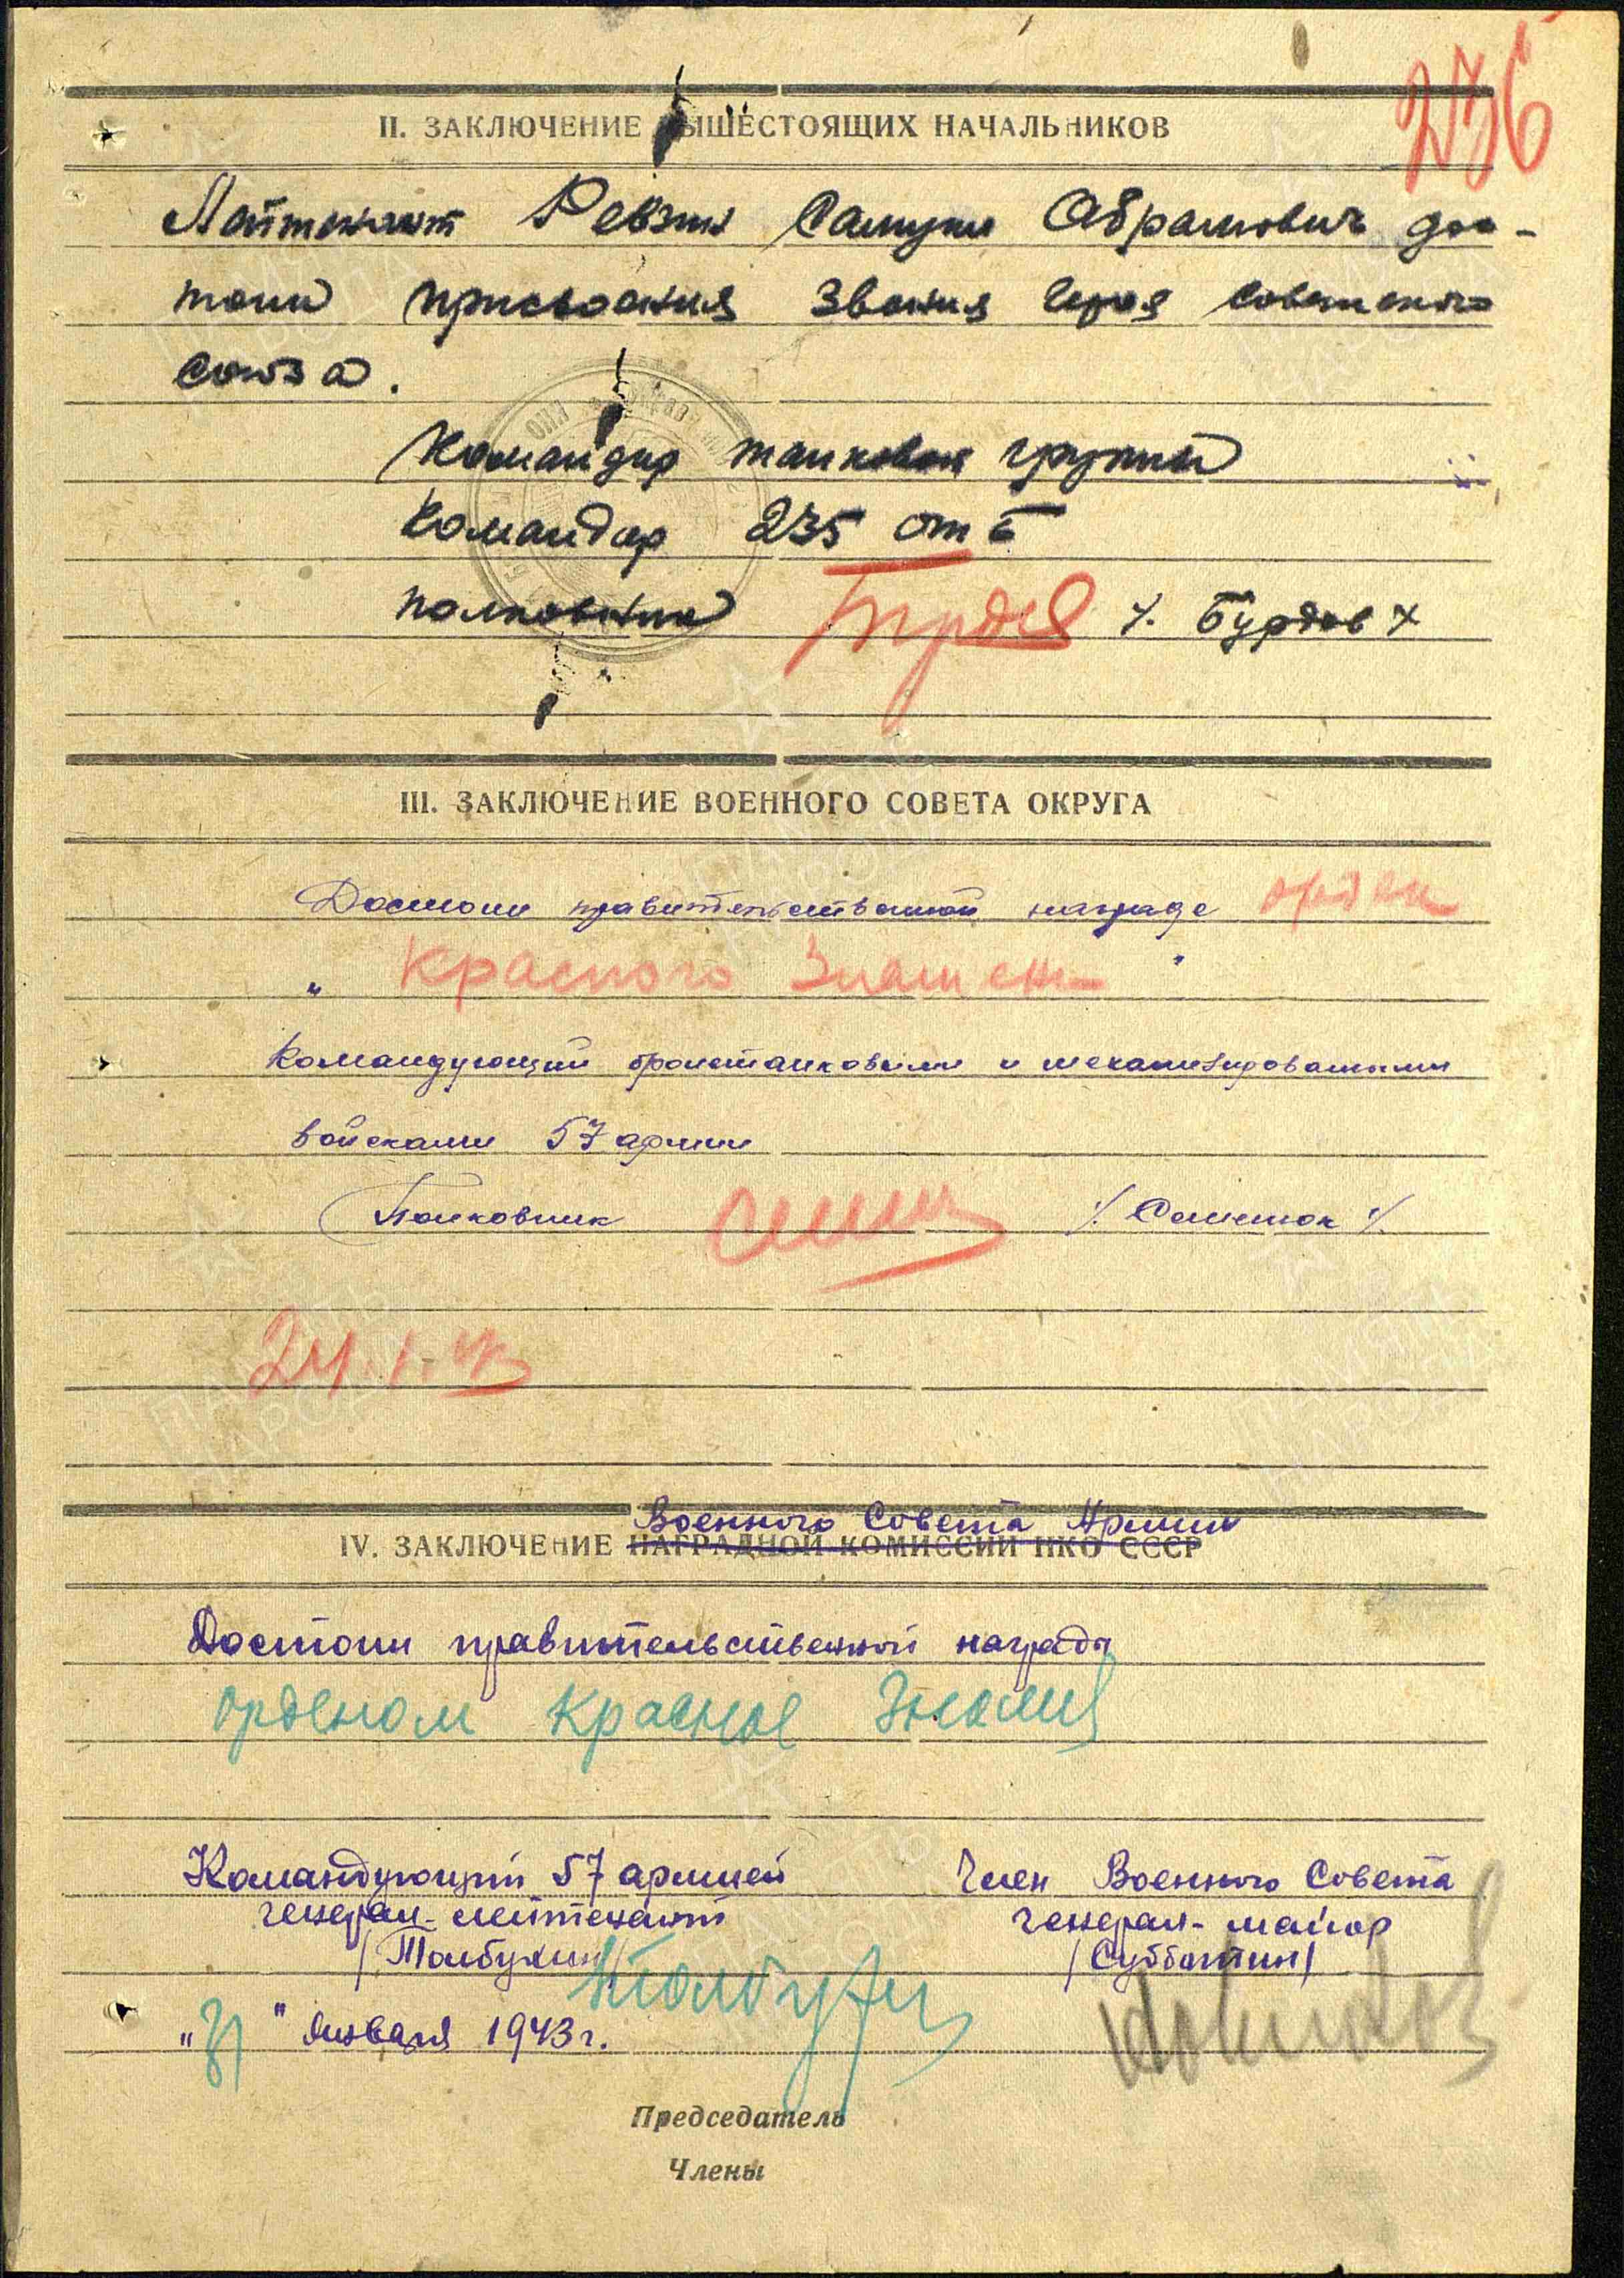 236
II. ЗАКЛЮЧЕНИЕ ВЫШЕСТОЯЩИХ НАЧАЛЬНИКОВ
Лейтенант Ревзин Самуил Абрамович дос-
тоин присвоения звания героя советского
союза.
Командир танковой группы
Командир 235 отб
полковник /. Бурдов /
III. ЗАКЛЮЧЕНИЕ ВОЕННОГО СОВЕТА ОКРУГА
Достоин правительственной награде орден
„ Красного Знамени "
Командующий бронетанковыми и механизированными
войсками 57 армии
Полковник /. Семенюк ./
24.1.43
Военного Совета Армии
IV. ЗАКЛЮЧЕНИЕ НАГРАДНОЙ КОМИССИИ НКО СССР
Достоин правительственной награды
орденом Красное Знамя
Командующий 57 армией Член Военного Совета
генерал-лейтенант генерал-майор
/Толбухин/ Толбухин /Субботин/
„31" января 1943 г.
Председатель
Члены
ПАМЯТЬ НАРОДА